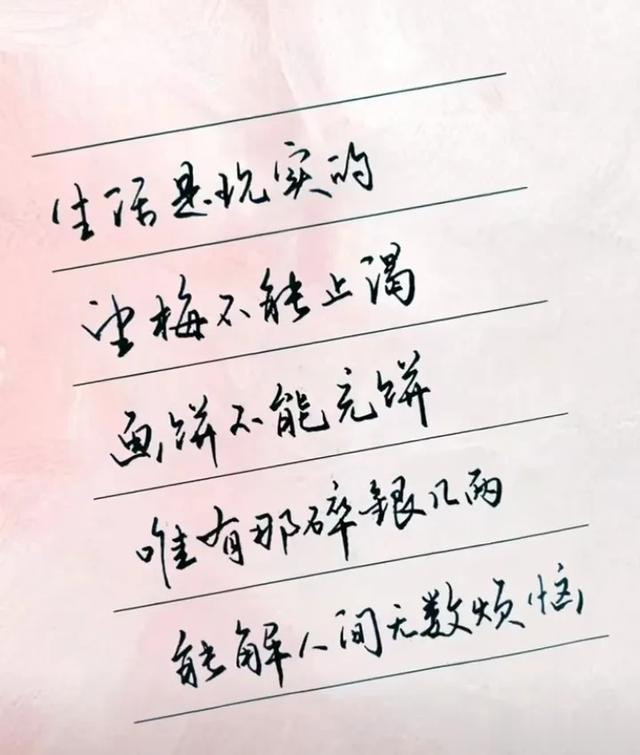 生活是现实的
望梅不能止渴
画饼不能充饼
唯有那碎銀几两
能解人间无数烦恼